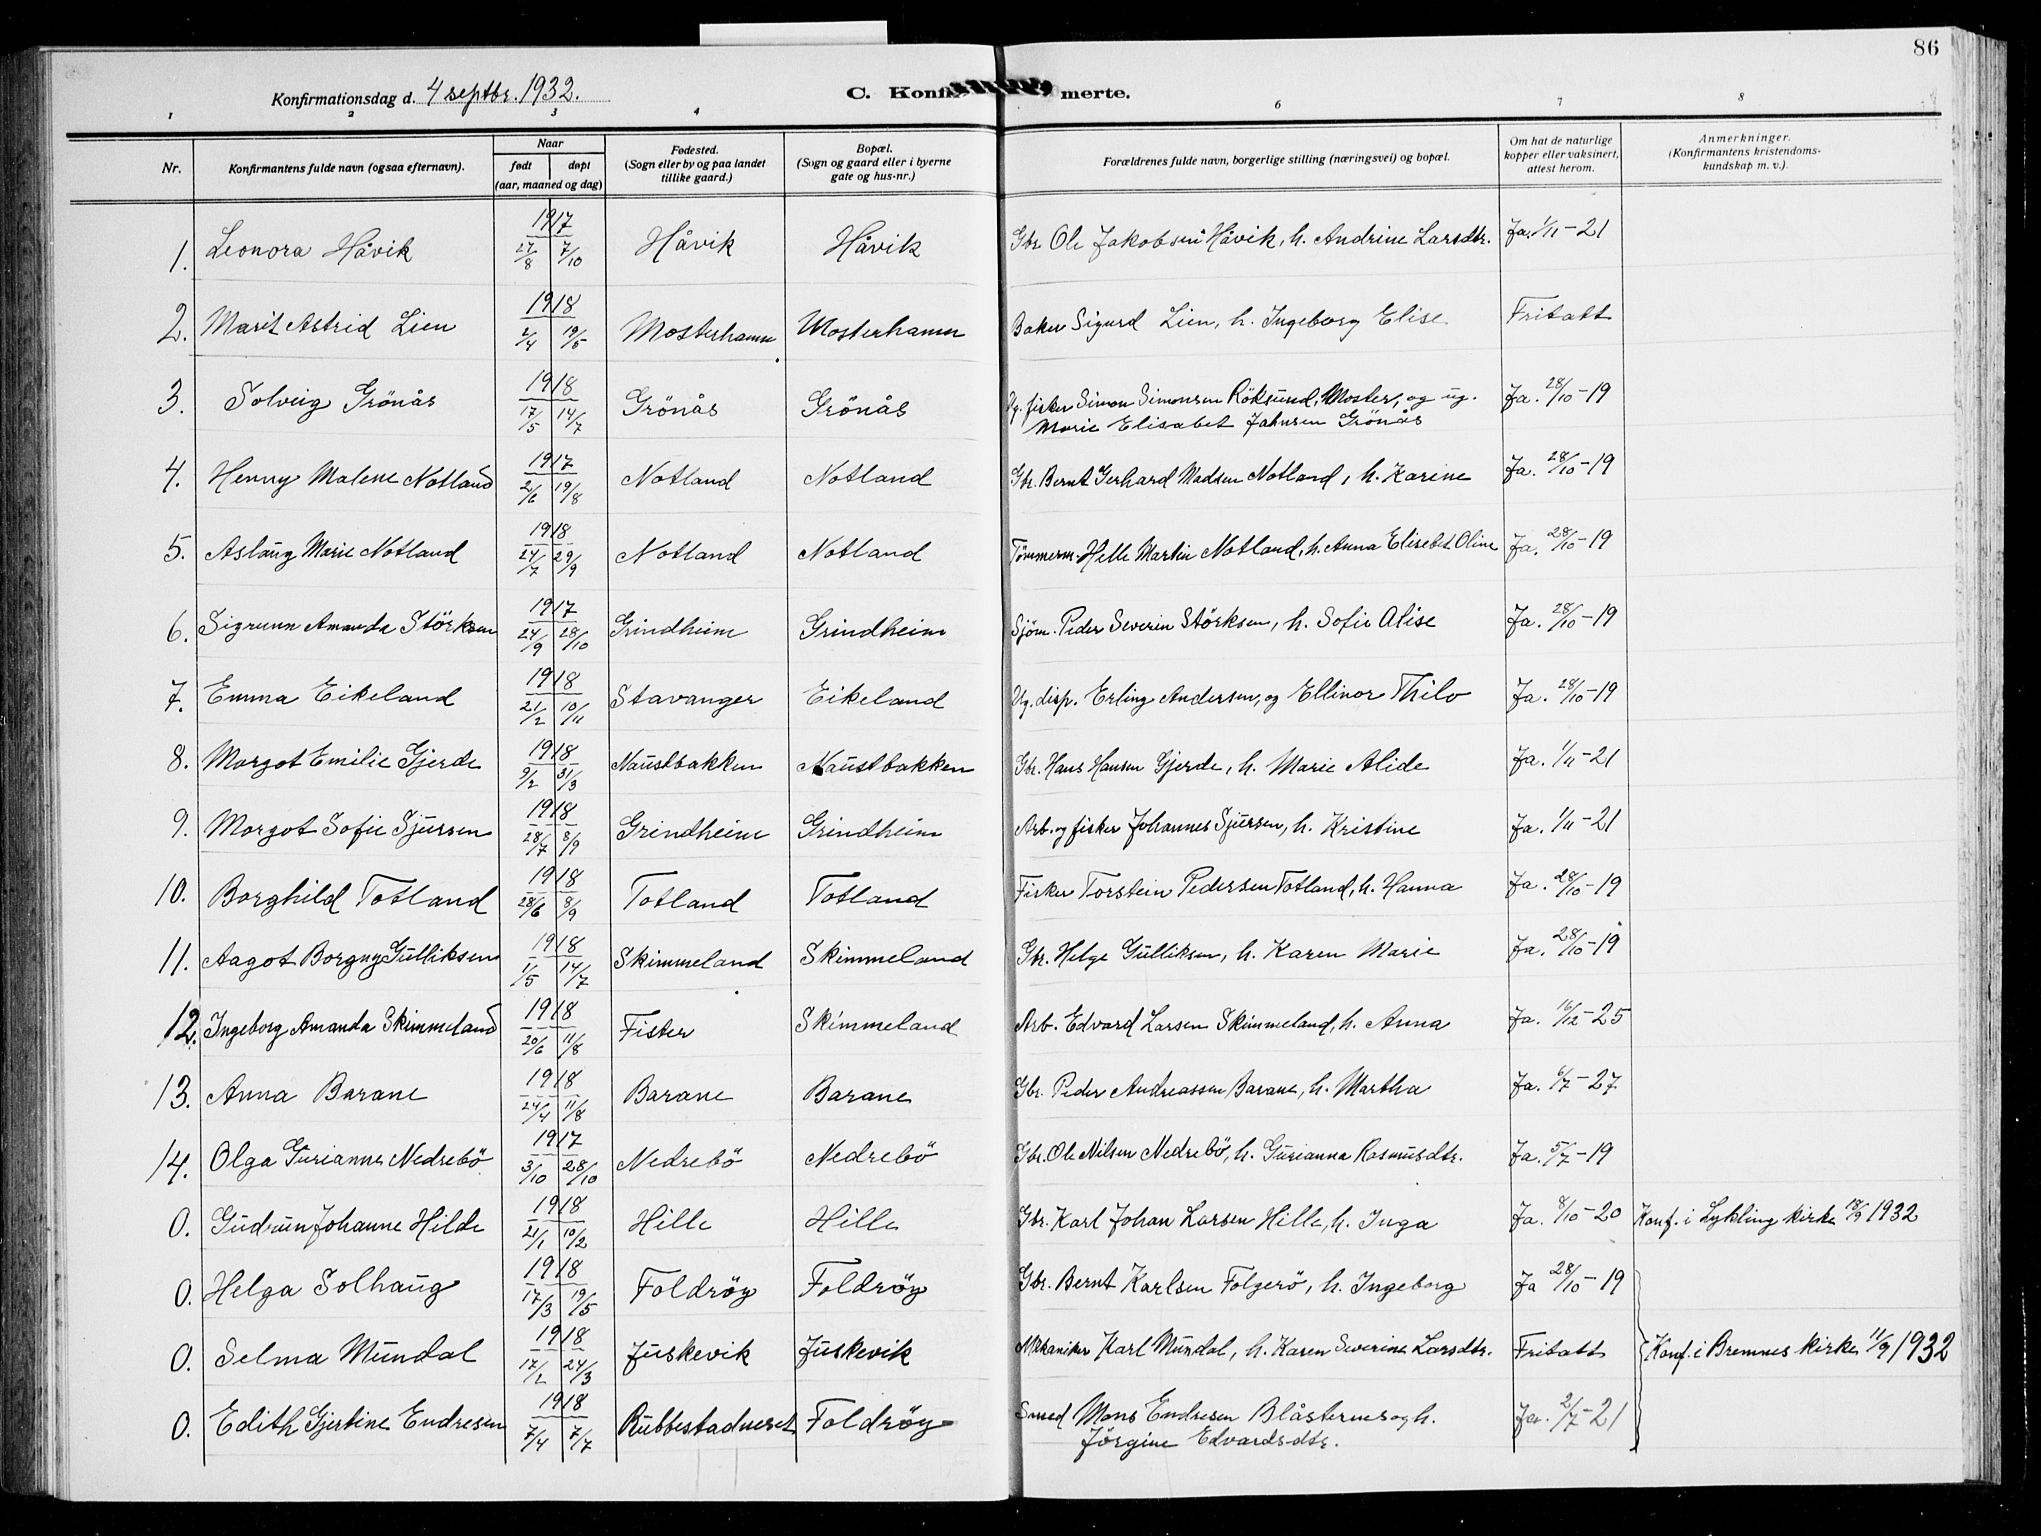 86
Konfirmationsdag d. 4 septbr. 1932. C. Konfir merte.
1 2 3 4 6 7 8
Nr. Konfirmantens fulde navn (ogsaa efternavn). Naar født døpt (aar, maaned og dag) Fødested. (Sogn eller by og paa landet tillike gaard.) Bopæl. (Sogn og gaard eller i byerne gate og hus-nr.) Forældrenes fulde navn, borgerlige stilling (næringsvei) og bopæl. Om hat de naturlige kopper eller vaksinert, attest herom. Anmerkninger. (Konfirmantens kristendoms-kundskap m. v.).
1. Leonora Håvik 1917 27/8 7/10 Håvik Håvik Gbr. Ole Jakobsen Håvik, h. Andrine Larsdtr. Ja. 1/11-21
2. Marit Astrid Lien 1918 2/4 19/5 Mosterhamn Mosterhamn Baker Sigurd Lien, h. Ingeborg Elise Fritatt
3. Solveig Grönås 1918 17/5 14/7 Grönås Grönås Ug. fisker Simon Simonsen Röksund, Moster, og ug. Ja. 28/10-19
Marie Elisabet Johnsen Grönås
4. Henny Malene Notland 1917 2/6 19/8 Notland Notland Gbr. Bernt Gerhard Madsen Notland, h. Karine Ja. 28/10-19
5. Aslaug Marie Notland 1918 24/7 29/9 Notland Notland Tömmerm. Helle Martin Notland, h. Anna Elisebet Oline Ja. 28/10-19
6. Sigrunn Amanda Störksen 1917 24/9 28/10 Grindheim Grindheim Sjöm. Peder Severin Störksen, h. Sofie Alise Ja. 28/10-19
7. Emma Eikeland 1918 21/2 10/11 Stavanger Eikeland Ug. disp. Erling Andersen, og Ellinor Thilo Ja. 28/10-19
8. Margot Emilie Gjerde 1918 9/2 31/3 Naustbakken Naustbakken Gbr. Hans Hansen Gjerde, h. Marie Alide Ja. 1/11-21
9. Margot Sofie Sjursen 1918 28/7 8/9 Grindheim Grindheim Arb. og fisker Johannes Sjursen, h. Kristine Ja. 1/11-21
10. Borghild Totland 1918 28/6 8/9 Totland Totland Fisker Torstein Pedersen Totland, h. Hanna Ja. 28/10-19
11. Aagot Borgny Gulliksen 1918 1/5 14/7 Skimmeland Skimmeland Gbr. Helge Gulliksen, h. Karen Marie Ja. 28/10-19
12. Ingeborg Amanda Skimmeland 1918 20/6 11/8 Fister Skimmeland Arb. Edvard Larsen Skimmeland, h. Anna Ja. 16/12-25
13. Anna Barane 1918 24/4 11/8 Barane Barane Gbr. Peder Andreassen Barane, h. Martha Ja. 6/7-27
14. Olga Gurianne Nedrebö 1917 3/10 28/10 Nedrebö Nedrebö Gbr. Ole Nilsen Nedrebö, h. Gurianna Rasmusdtr. Ja. 5/7-19
0. Gudrun Johanne Hilde 1918 21/1 10/2 Hille Hille Gbr. Karl Johan Larsen Hille, h. Inga Ja. 8/10-20 Konf. i Lykling kirke 18/9 1932
0. Helga Solhaug 1918 17/3 19/5 Foldröy Foldröy Gbr. Bernt Karlsen Folgerö, h. Ingeborg Ja 28/10-19
0. Selma Mundal 1918 17/2 24/3 Juskevik Juskevik Mekaniker Karl Mundal, h. Karen Severine Larsdtr. Fritatt Konf. i Bremnes kirke 11/9 1932
0. Edith Gjertine Endresen 1918 7/4 7/7 Rubbestadneset Foldröy Smed Mons Endresen Blåsternes og h. Ja. 2/7-21
Jörgine Edvardsdtr.